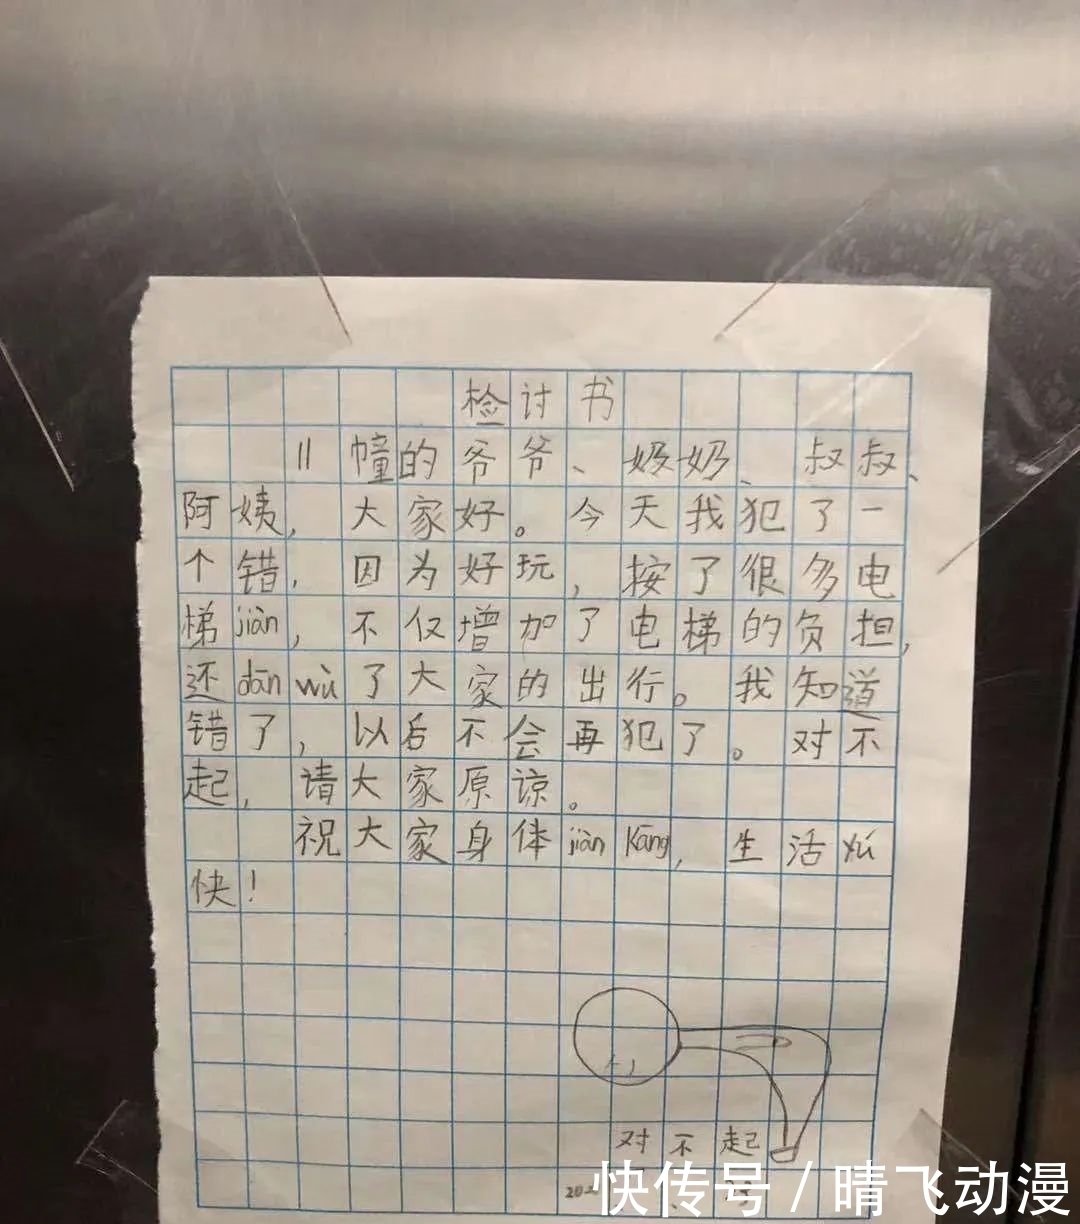 检讨书
11幢的爷爷、奶奶、叔叔、
阿姨，大家好。今天我犯了一
个错，因为好玩，按了很多电
梯jiàn，不仅增加了电梯的负担，
还dān wù了大家的出行。我知道
错了，以后不会再犯了。对不
起，请大家原谅。
祝大家身体jiàn kāng，生活yú
快！
对不起
202
快传号/晴飞动漫